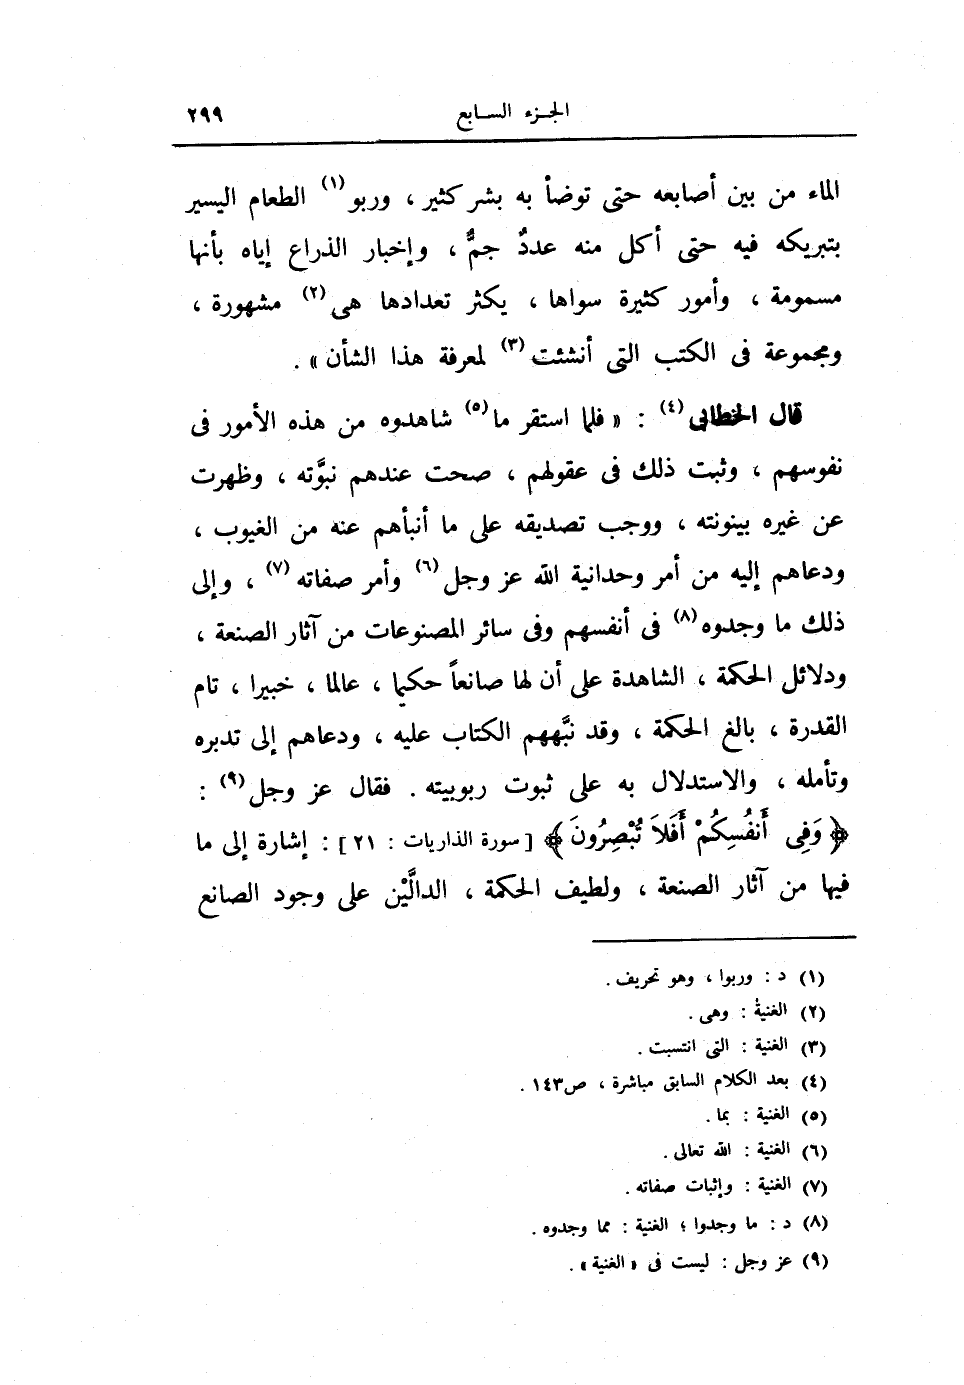 الجزء السابع ٢٩٩
الماء من بين أصابعه حتى توضأ به بشر كثير ، وربو (١) الطعام اليسير
بتبريكه فيه حتى أكل منه عددٌ جمٌّ ، وإخبار الذراع إياه بأنها
مسمومة ، وأمور كثيرة سواها ، يكثر تعدادها هى (٢) مشهورة ،
ومجموعة فى الكتب التى أنشئت (٣) لمعرفة هذا الشأن » .
قال الخطابى (٤) : « فلما استقر ما (٥) شاهدوه من هذه الأمور فى
نفوسهم ، وثبت ذلك فى عقولهم ، صحت عندهم نبوَّته ، وظهرت
عن غيره بينونته ، ووجب تصديقه على ما أنبأهم عنه من الغيوب ،
ودعاهم إليه من أمر وحدانية الله عز وجل (٦) وأمر صفاته (٧) ، وإلى
ذلك ما وجدوه (٨) فى أنفسهم وفى سائر المصنوعات من آثار الصنعة ،
ودلائل الحكمة ، الشاهدة على أن لها صانعاً حكيما ، عالما ، خبيرا ، تام
القدرة ، بالغ الحكمة ، وقد نبَّههم الكتاب عليه ، ودعاهم إلى تدبره
وتأمله ، والاستدلال به على ثبوت ربوبيته . فقال عز وجل (٩) :
﴿ وَفِى أَنفُسِكُمْ أَفَلاَ تُبْصِرُونَ ﴾ [ سورة الذاريات : ٢١ ] : إشارة إلى ما
فيها من آثار الصنعة ، ولطيف الحكمة ، الدالَّيْن على وجود الصانع
(١) د : وربوا ، وهو تحريف .
(٢) الغنية : وهى .
(٣) الغنية : التى انتسبت .
(٤) بعد الكلام السابق مباشرة ، ص١٤٣ .
(٥) الغنية : بما .
(٦) الغنية : الله تعالى .
(٧) الغنية : وإثبات صفاته .
(٨) د : ما وجدوا ؛ الغنية : مما وجدوه .
(٩) عز وجل : ليست فى « الغنية » .